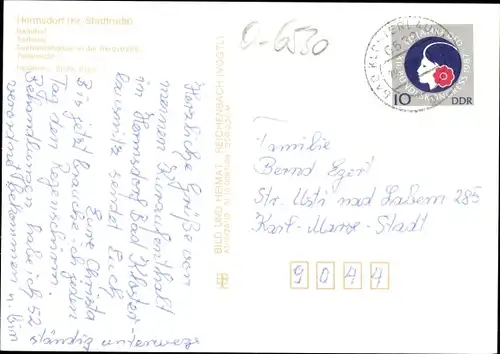 Hermsdorf (Kr. Stadtroda)
Bahnhof
Rathaus
O-6530
BAD KLOSTERLAUSNITZ
6530
BUNDESKONGRESS 1987
10 DDR
Herzliche Grüße von
meinem Kuraufenthalt
in Hermsdorf Bad Kloster-
lausnitz sendet Euch
Eure Christa
Bis jetzt brauche ich jeden
Tag den Regenschirm.
Behandlungen habe ich 52
verordnet bekommen u. bin
ständig unterwegs
BILD UND HEIMAT REICHENBACH (VOGTL)
Familie
Bernd Egert
Str. Usti nad Labem 285
Karl-Marx-Stadt
9044